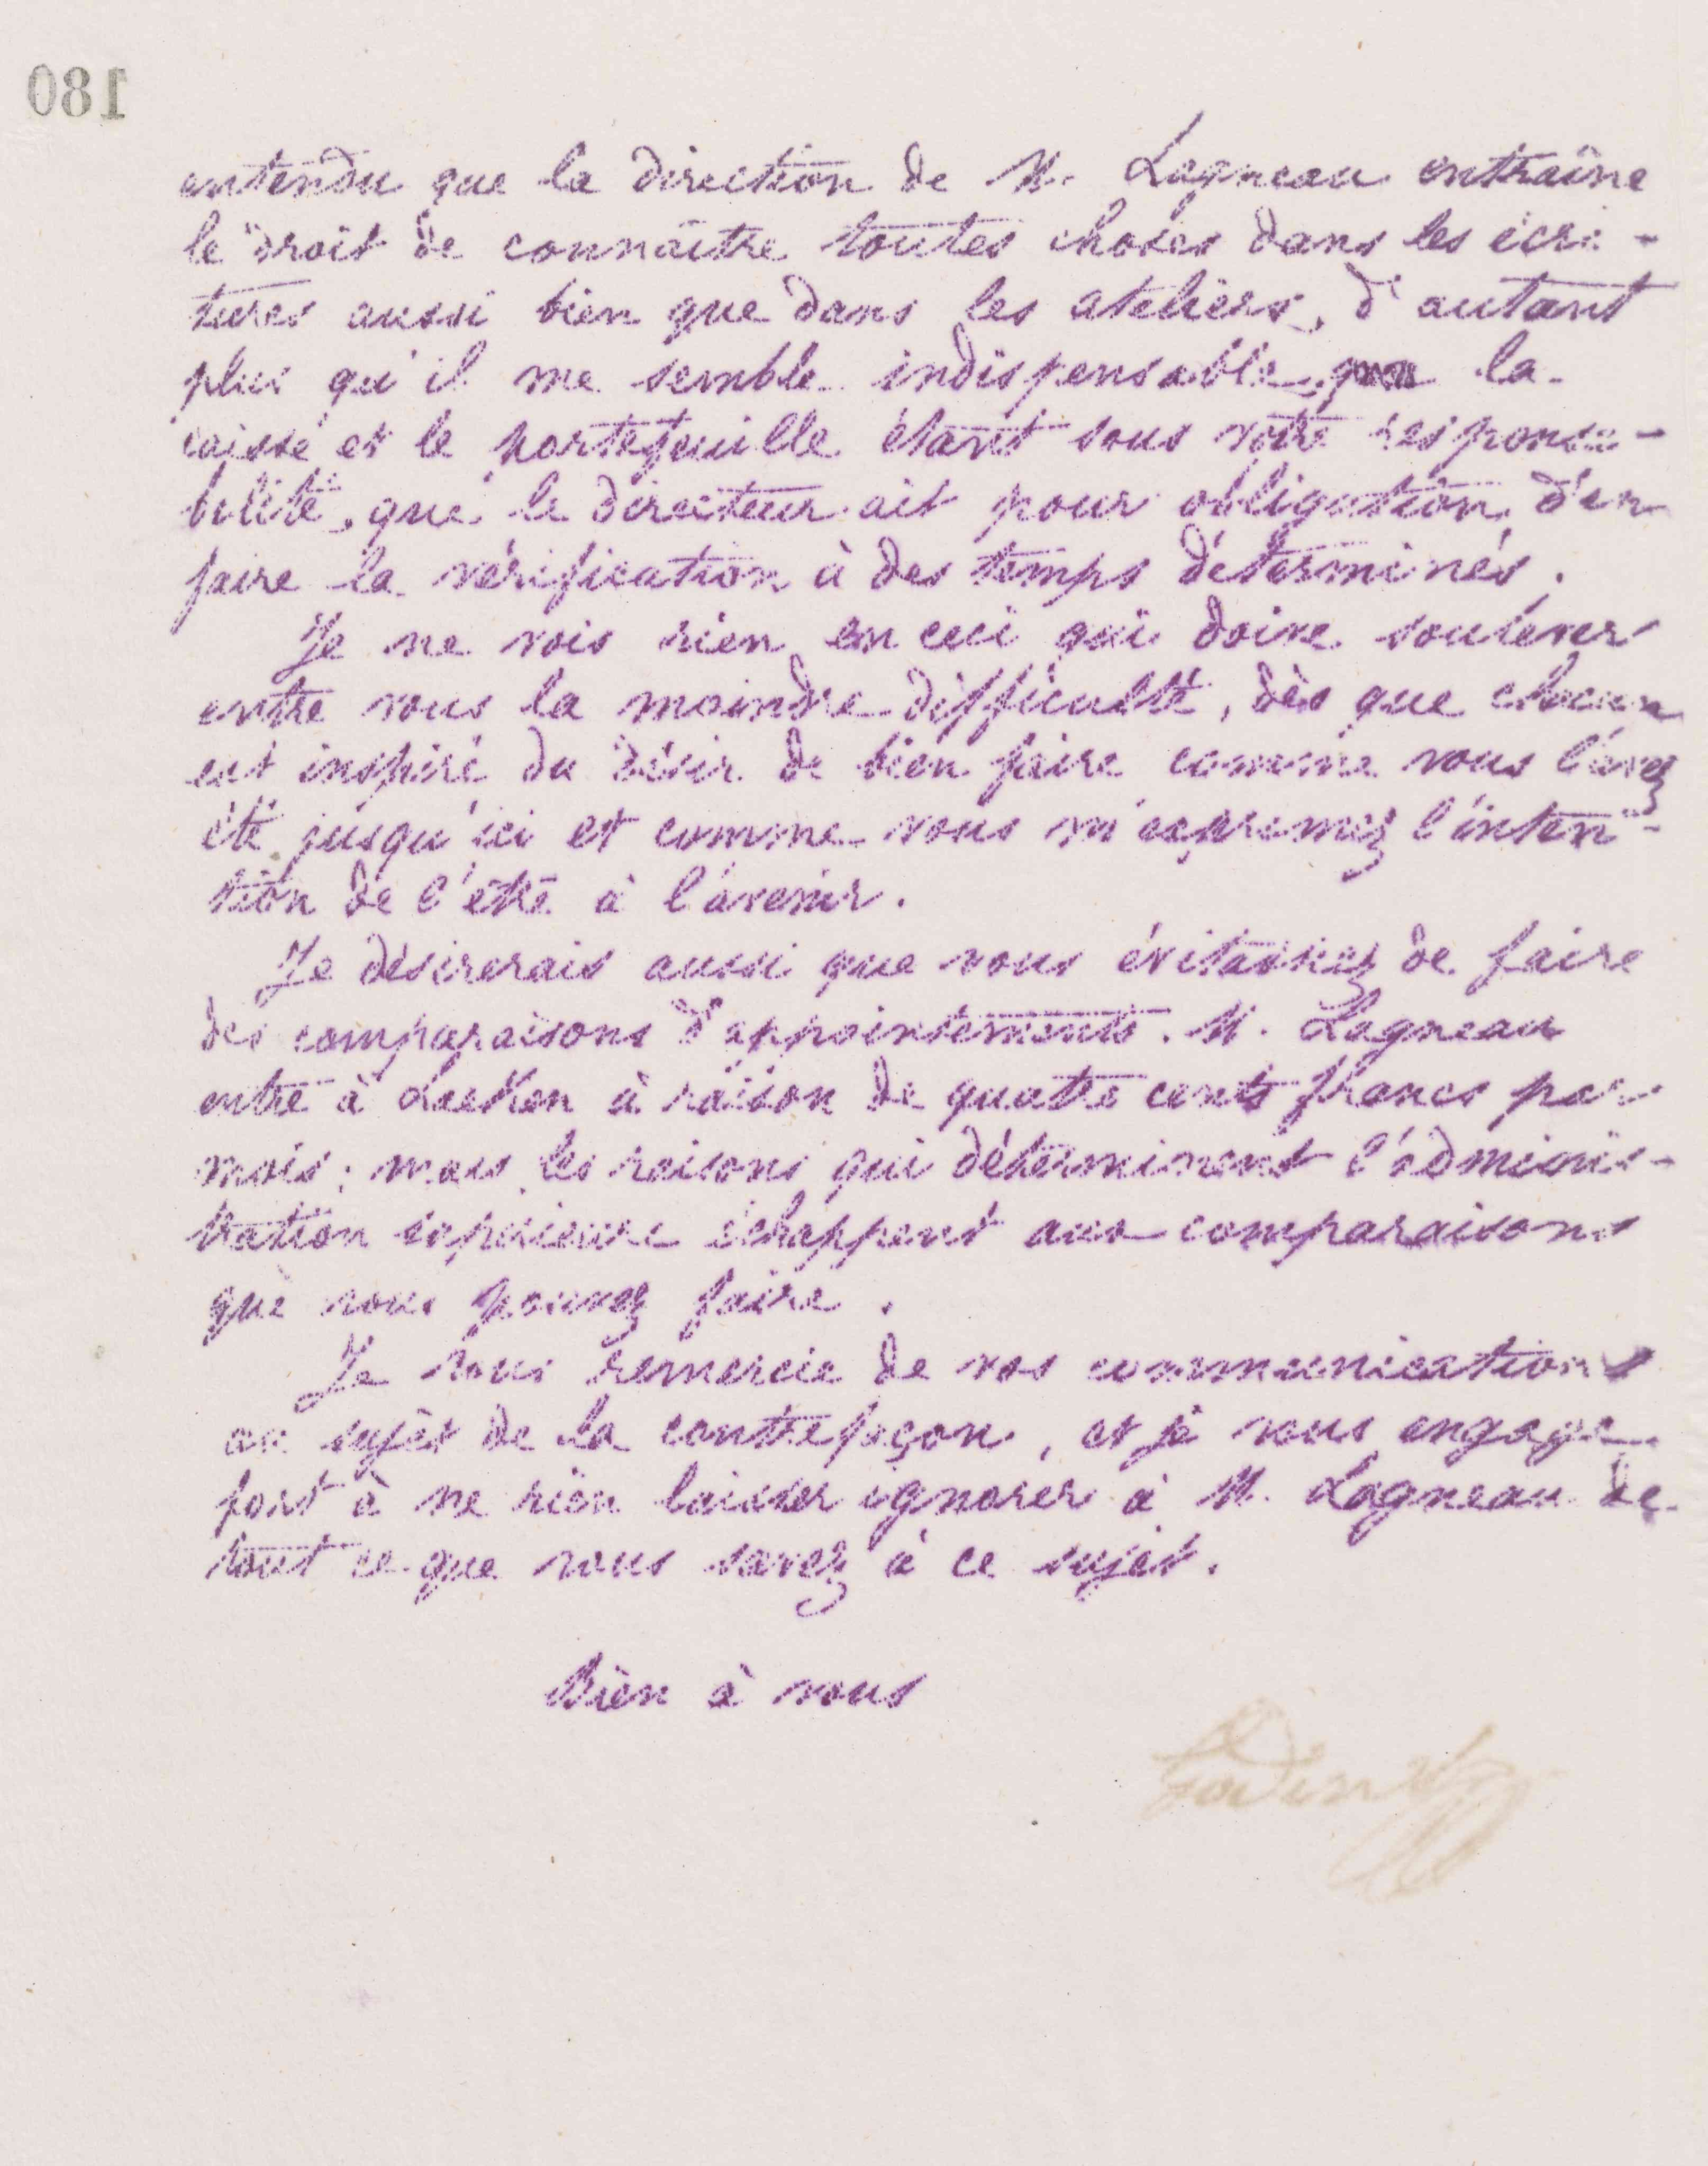 180
entendu que la direction de M. Lagneau entraîne
le droit de connaître toutes choses dans les écri-
tures aussi bien que dans les ateliers, d'autant
plus qu'il me semble indispensable, la
caisse et le portefeuille étant sous votre responsa-
bilité, que le directeur ait pour obligation d'en
faire la vérification à des temps déterminés.
Je ne vois rien en ceci qui doive soulever
entre vous la moindre difficulté, dès que chacun
est inspiré du désir de bien faire comme vous l'avez
été jusqu'ici et comme vous m'exprimez l'inten-
tion de l'être à l'avenir.
Je désirerais aussi que vous évitassiez de faire
des comparaisons d'appointements. M. Lagneau
entre à Laeken à raison de quatre cents francs par
mois; mais les raisons qui déterminent l'adminis-
tration supérieure échappent aux comparaisons
que vous pouvez faire.
Je vous remercie de vos communications
au sujet de la contrefaçon, et je vous engage
fort à ne rien laisser ignorer à M. Lagneau de
tout ce que vous savez à ce sujet.
Bien à vous
Godin